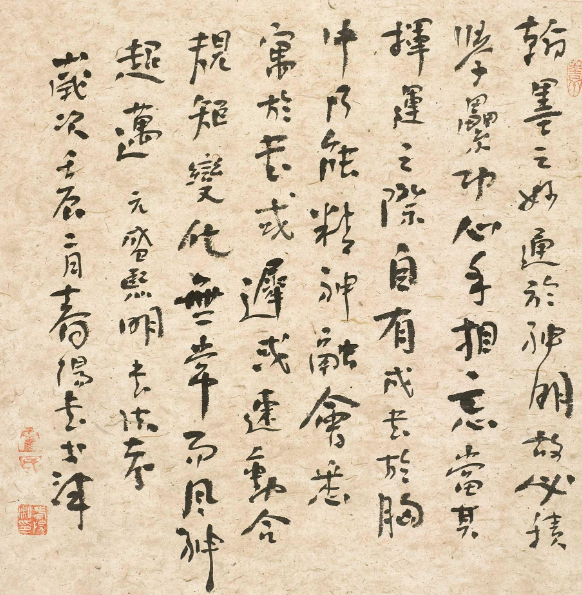 翰墨之妙通於神明故必積
學纍功心手相忘當其
揮運之際自有成書於胸
中乃能精神融會悉
寓於書或遲或速動合
規矩變化無常而風神
超邁 元盛熙明書法考
歲次壬辰二月春陽書于津